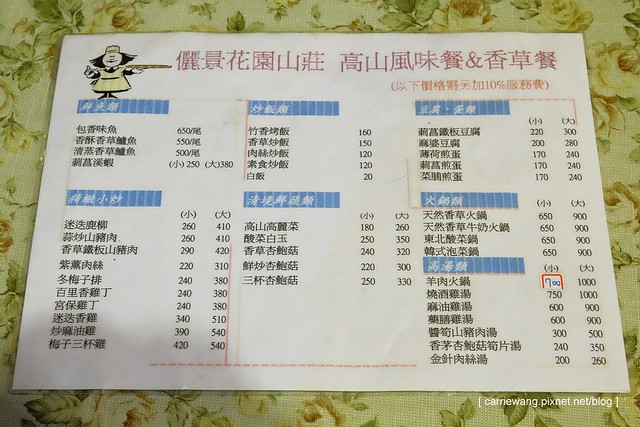 儷景花園山莊 高山風味餐&香草餐
(以下價格需另加10%服務費)
鮮魚類
包香味魚 650/尾
香酥香草鱸魚 550/尾
清蒸香草鱸魚 500/尾
萳萵溪蝦 (小) 250 (大)380
炒飯類
竹香烤飯 160
香草炒飯 150
肉絲炒飯 120
素食炒飯 120
白飯 20
豆腐、蛋類
(小) (大)
萳萵鐵板豆腐 220 300
麻婆豆腐 200 280
薄荷煎蛋 170 240
萳萵煎蛋 170 240
菜脯煎蛋 170 240
精緻小炒
(小) (大)
迷迭鹿柳 260 410
蒜炒山豬肉 260 410
香草鐵板山豬肉 290 420
紫薰肉絲 220 310
冬梅子排 240 380
百里香雞丁 240 380
宮保雞丁 240 380
迷迭香雞 340 510
炒麻油雞 390 540
梅子三杯雞 420 540
清境鮮蔬類
(小) (大)
高山高麗菜 180 260
酸菜白玉 250 350
香草杏鮑菇 240 320
鮮炒杏鮑菇 220 300
三杯杏鮑菇 250 330
火鍋類
(小) (大)
天然香草火鍋 650 900
天然香草牛奶火鍋 650 900
東北酸菜鍋 650 900
韓式泡菜鍋 650 900
高湯類
(小) (大)
羊肉火鍋 700 1000
燒酒雞湯 750 1000
麻油雞湯 600 900
藥膳雞湯 600 900
醬筍山豬肉湯 300 500
香茅杏鮑菇筍片湯 240 350
金針肉絲湯 200 260
[ carriewang.pixnet.net/blog ]